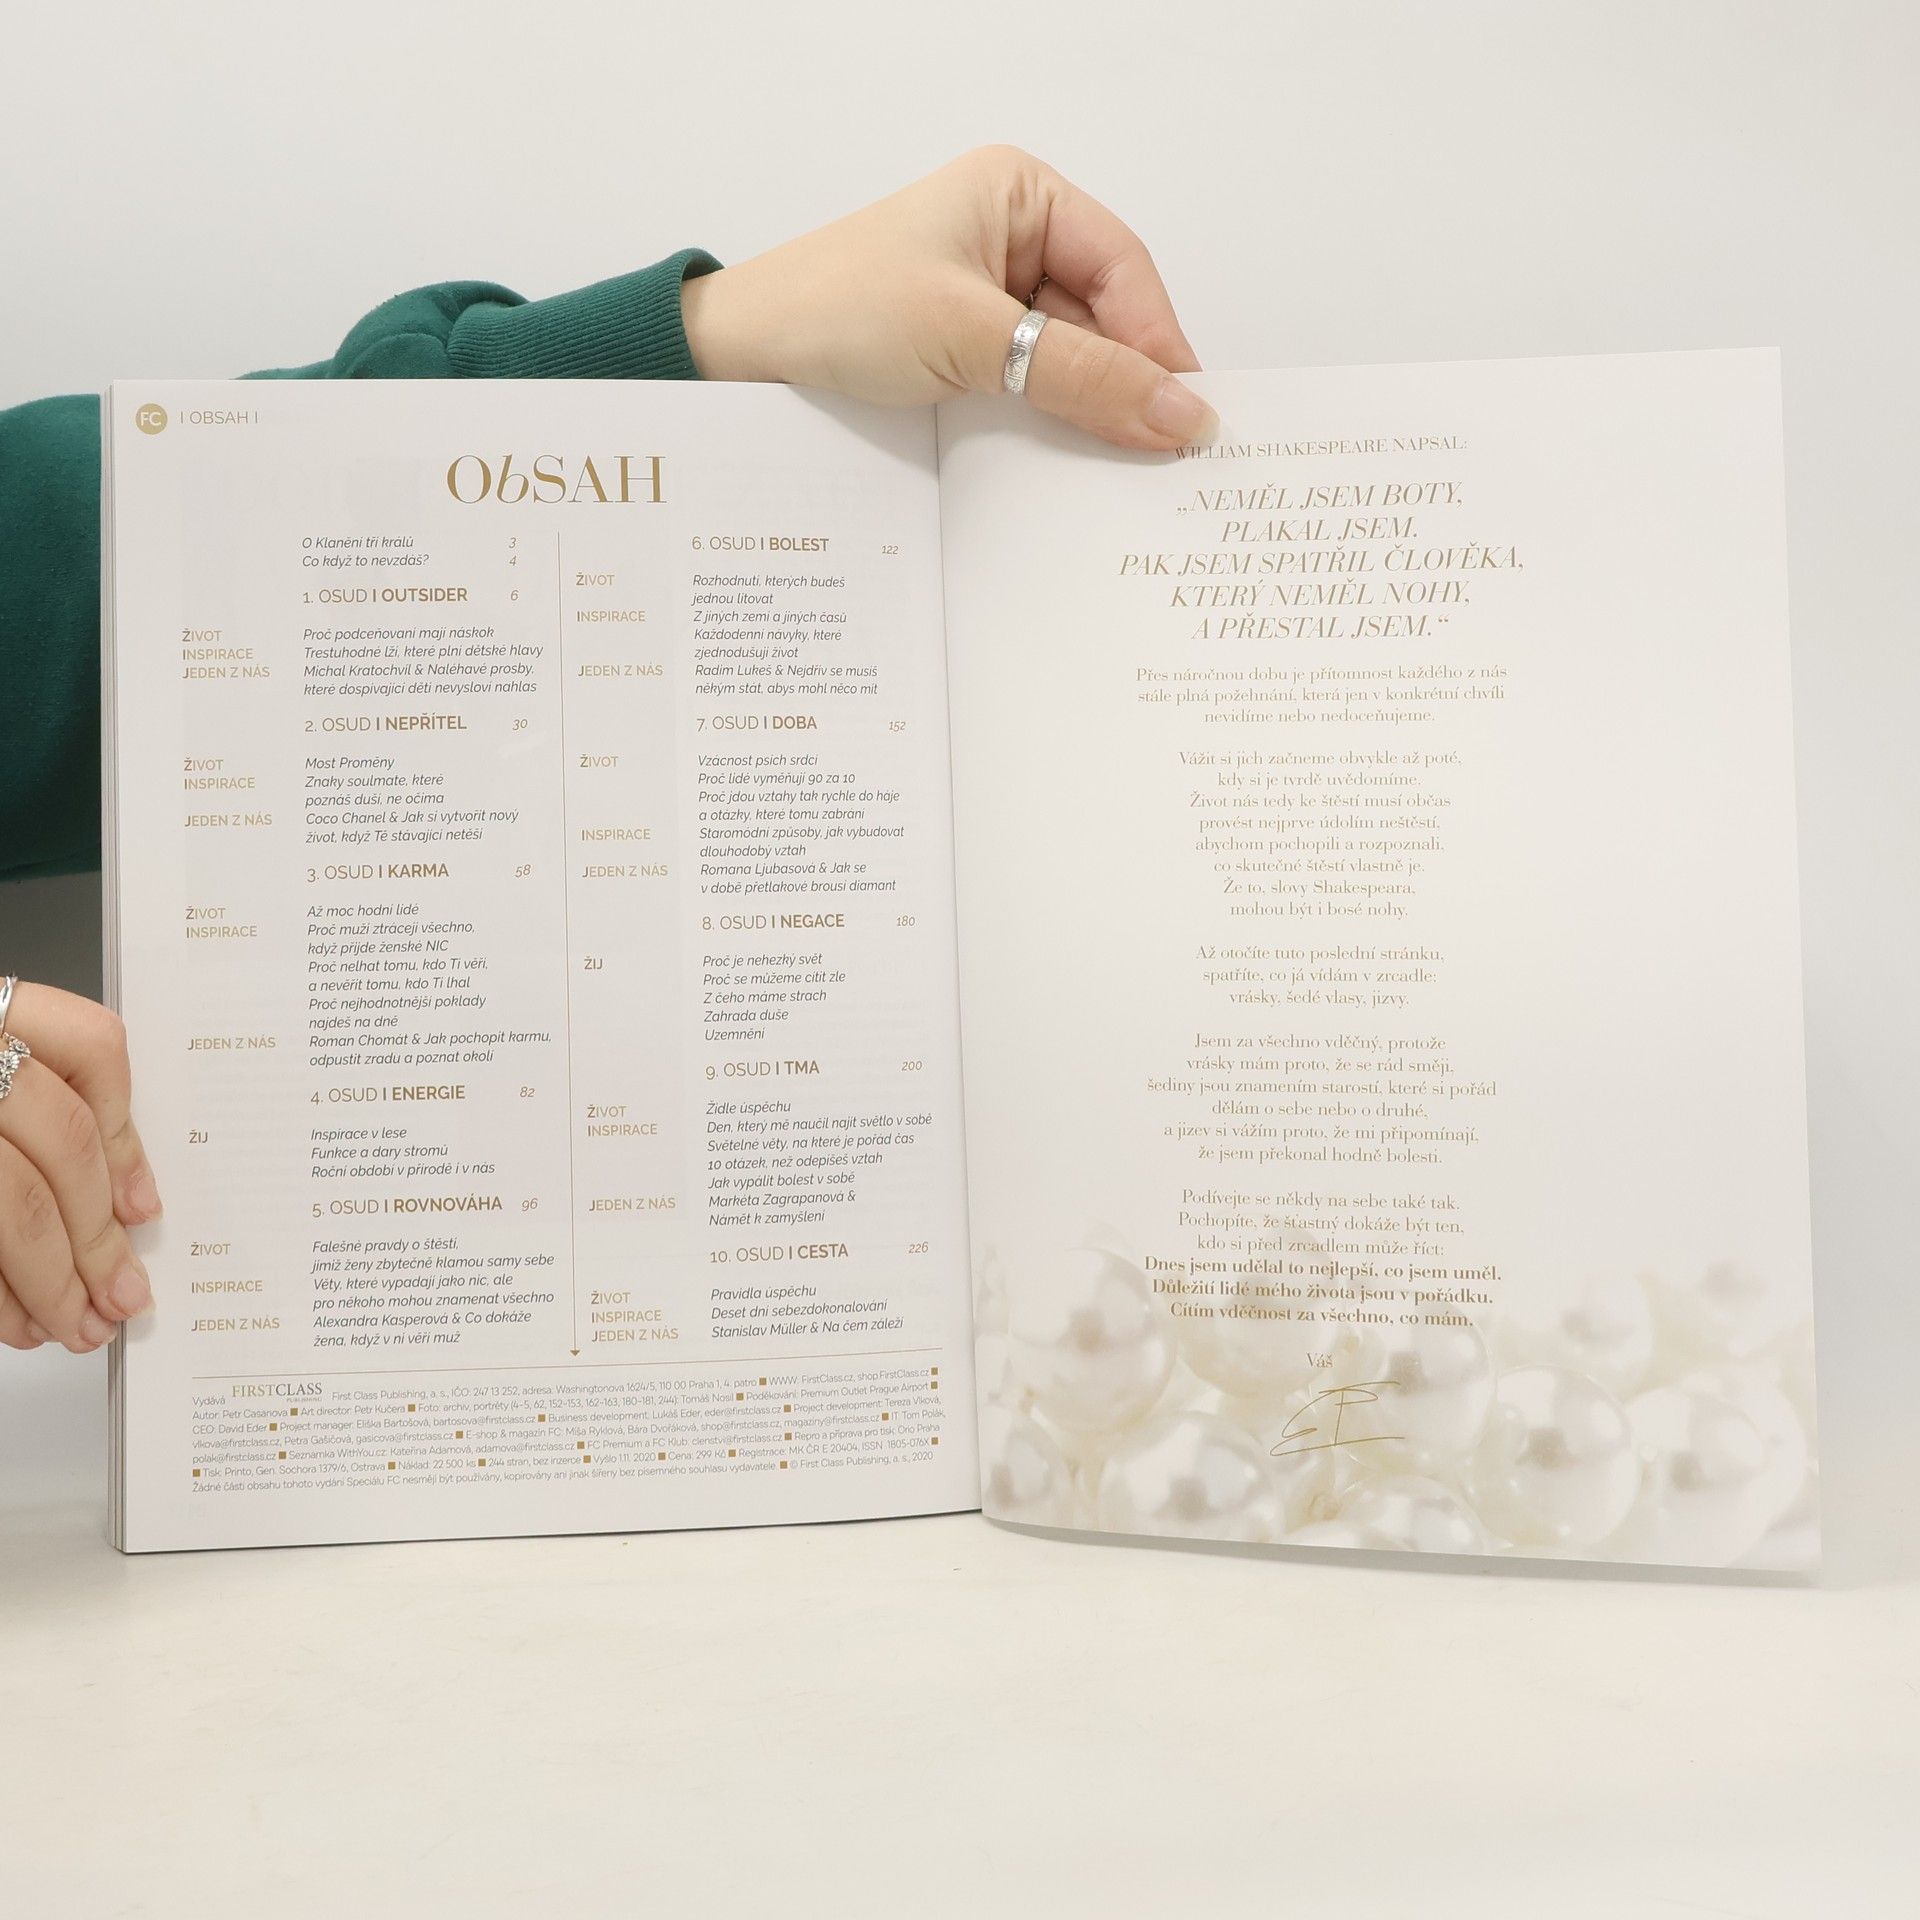 FC | OBSAH |
ObSAH
O Klanění tří králů 3
Co když to nevzdáš? 4
1. OSUD | OUTSIDER 6
ŽIVOT Proč podceňovaní mají náskok
INSPIRACE Trestuhodné lži, které plní dětské hlavy
JEDEN Z NÁS Michal Kratochvíl & Naléhavé prosby,
které dospívající děti nevysloví nahlas
2. OSUD | NEPŘÍTEL 30
ŽIVOT Most Proměny
INSPIRACE Znaky soulmate, které
poznáš duší, ne očima
JEDEN Z NÁS Coco Chanel & Jak si vytvořit nový
život, když Tě stávající netěší
3. OSUD | KARMA 58
ŽIVOT Až moc hodní lidé
INSPIRACE Proč muži ztrácejí všechno,
když přijde ženské NIC
Proč nelhat tomu, kdo Ti věří,
a nevěřit tomu, kdo Ti lhal
Proč nejhodnotnější poklady
najdeš na dně
JEDEN Z NÁS Roman Chomát & Jak pochopit karmu,
odpustit zradu a poznat okolí
4. OSUD | ENERGIE 82
ŽIJ Inspirace v lese
Funkce a dary stromů
Roční období v přírodě i v nás
5. OSUD | ROVNOVÁHA 96
ŽIVOT Falešné pravdy o štěstí,
jimiž ženy zbytečně klamou samy sebe
INSPIRACE Věty, které vypadají jako nic, ale
pro někoho mohou znamenat všechno
JEDEN Z NÁS Alexandra Kasperová & Co dokáže
žena, když v ni věří muž
6. OSUD | BOLEST 122
ŽIVOT Rozhodnutí, kterých budeš
jednou litovat
INSPIRACE Z jiných zemí a jiných časů
Každodenní návyky, které
zjednodušují život
JEDEN Z NÁS Radim Lukeš & Nejdřív se musíš
někým stát, abys mohl něco mít
7. OSUD | DOBA 152
ŽIVOT Vzácnost psích srdcí
Proč lidé vyměňují 90 za 10
Proč jdou vztahy tak rychle do háje
a otázky, které tomu zabrání
INSPIRACE Staromódní způsoby, jak vybudovat
dlouhodobý vztah
JEDEN Z NÁS Romana Ljubasová & Jak se
v době přetlakové brousí diamant
8. OSUD | NEGACE 180
ŽIJ Proč je nehezký svět
Proč se můžeme cítit zle
Z čeho máme strach
Zahrada duše
Uzemnění
9. OSUD | TMA 200
ŽIVOT Židle úspěchu
INSPIRACE Den, který mě naučil najít světlo v sobě
Světelné věty, na které je pořád čas
10 otázek, než odepíšeš vztah
Jak vypálit bolest v sobě
JEDEN Z NÁS Markéta Zagrapanová &
Námět k zamyšlení
10. OSUD | CESTA 226
ŽIVOT Pravidla úspěchu
INSPIRACE Deset dní sebezdokonalování
JEDEN Z NÁS Stanislav Müller & Na čem záleží
Vydává FIRSTCLASS PUBLISHING First Class Publishing, a. s., IČO: 247 13 252, adresa: Washingtonova 1624/5, 110 00 Praha 1, 4. patro ■ WWW: FirstClass.cz, shop.FirstClass.cz ■
Autor: Petr Casanova ■ Art director: Petr Kučera ■ Foto: archiv, portréty (4-5, 62, 152-153, 162-163, 180-181, 244): Tomáš Nosil ■ Poděkování: Premium Outlet Prague Airport ■
CEO: David Eder ■ Project manager: Eliška Bartošová, bartosova@firstclass.cz ■ Business development: Lukáš Eder, eder@firstclass.cz ■ Project development: Tereza Vlková,
vlkova@firstclass.cz, Petra Gašičová, gasicova@firstclass.cz ■ E-shop & magazín FC: Míša Ryklová, Bára Dvořáková, shop@firstclass.cz, magaziny@firstclass.cz ■ IT: Tom Polák,
polak@firstclass.cz ■ Seznamka WithYou.cz: Kateřina Adamová, adamova@firstclass.cz ■ FC Premium a FC Klub: clenstvi@firstclass.cz ■ Repro a příprava pro tisk: Orio Praha
■ Tisk: Printo, Gen. Sochora 1379/6, Ostrava ■ Náklad: 22 500 ks ■ 244 stran, bez inzerce ■ Vyšlo 1.11. 2020 ■ Cena: 299 Kč ■ Registrace: MK ČR E 20404, ISSN 1805-076X ■
Žádné části obsahu tohoto vydání Speciálu FC nesmějí být používány, kopírovány ani jinak šířeny bez písemného souhlasu vydavatele. ■ © First Class Publishing, a. s., 2020
WILLIAM SHAKESPEARE NAPSAL:
„NEMĚL JSEM BOTY,
PLAKAL JSEM.
PAK JSEM SPATŘIL ČLOVĚKA,
KTERÝ NEMĚL NOHY,
A PŘESTAL JSEM.“
Přes náročnou dobu je přítomnost každého z nás
stále plná požehnání, která jen v konkrétní chvíli
nevidíme nebo nedoceňujeme.
Vážit si jich začneme obvykle až poté,
kdy si je tvrdě uvědomíme.
Život nás tedy ke štěstí musí občas
provést nejprve údolím neštěstí,
abychom pochopili a rozpoznali,
co skutečné štěstí vlastně je.
Že to, slovy Shakespeara,
mohou být i bosé nohy.
Až otočíte tuto poslední stránku,
spatříte, co já vídám v zrcadle:
vrásky, šedé vlasy, jizvy.
Jsem za všechno vděčný, protože
vrásky mám proto, že se rád směji,
šediny jsou znamením starostí, které si pořád
dělám o sebe nebo o druhé,
a jizev si vážím proto, že mi připomínají,
že jsem překonal hodně bolesti.
Podívejte se někdy na sebe také tak.
Pochopíte, že šťastný dokáže být ten,
kdo si před zrcadlem může říct:
Dnes jsem udělal to nejlepší, co jsem uměl.
Důležití lidé mého života jsou v pořádku.
Cítím vděčnost za všechno, co mám.
Váš